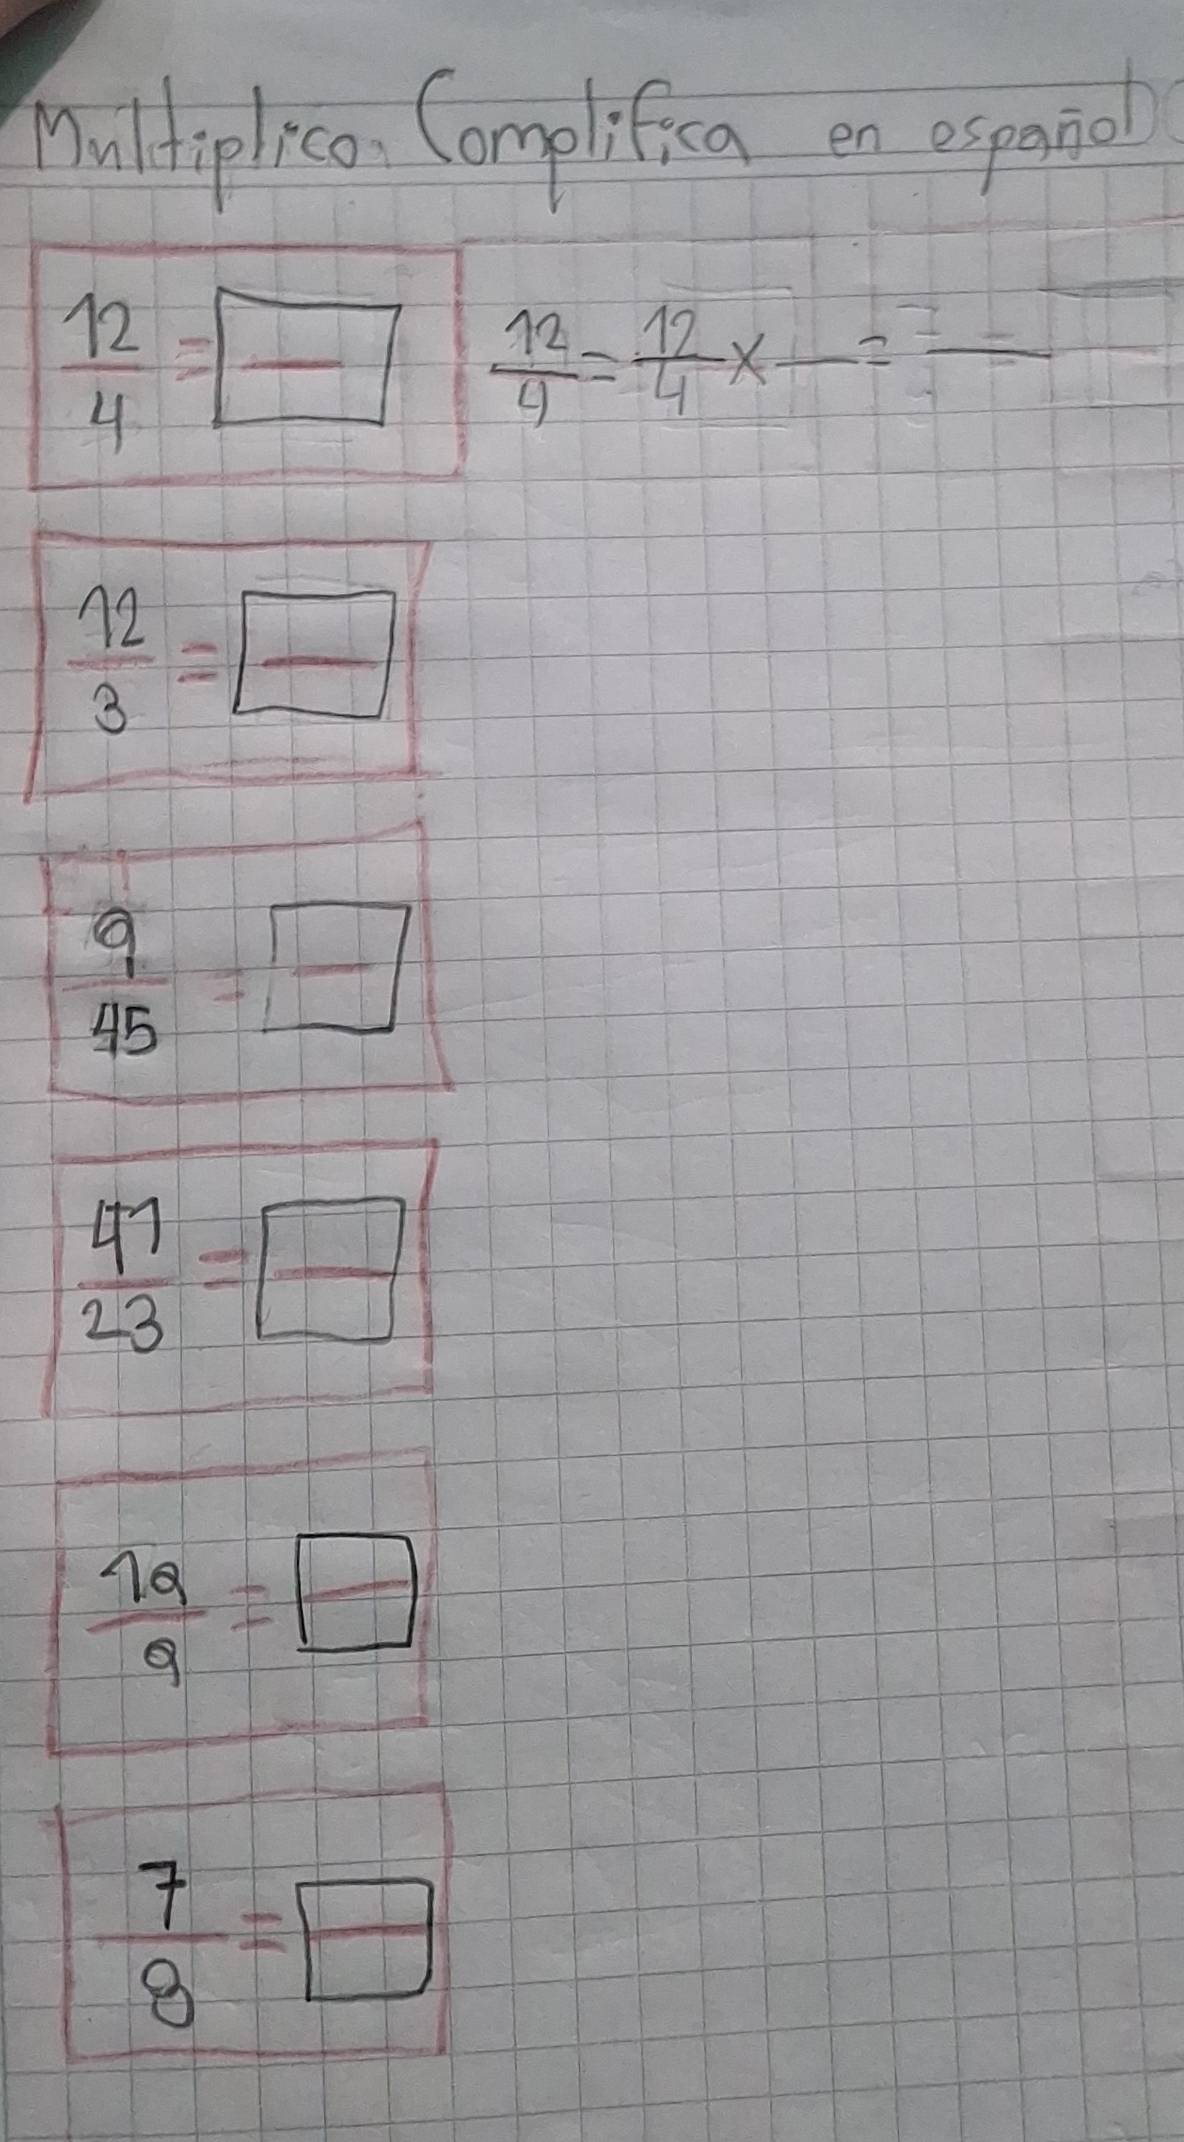 Multiplico. Complifica en español
12/4 = — 12/4 = 12/4 × — = —
12/3 = —
9/45 = —
41/23 = —
19/9 = —
7/8 = —